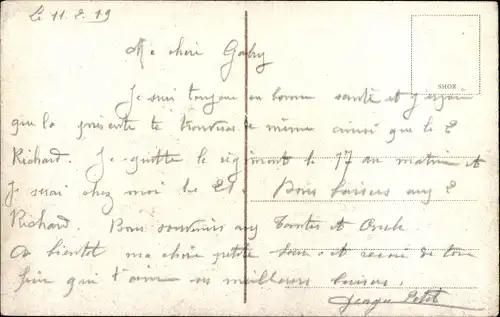 Le 11.8.19
Ma chère Gaby
SHOR
Je suis toujour en bonne santé et j'espère
que la présente te trouvera de même ainsi que le E
Richard. Je quitte le régiment le 17 au matin et
je serai chez moi le 21. Bons baisers aux E
Richard. Bons souvenirs aux Tantes et Oncle.
A bientôt ma chère petite et reçois de ton
qui t'aime ses meilleurs baisers.
Georges Petit